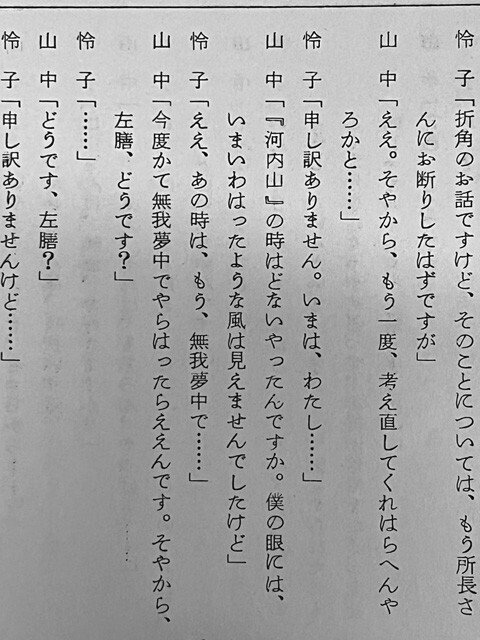 怜　子「折角のお話ですけど、そのことについては、もう所長さ
んにお断りしたはずですが」
山　中「ええ。そやから、もう一度、考え直してくれはらへんや
ろかと……」
怜　子「申し訳ありません。いまは、わたし……」
山　中「『河内山』の時はどないやったんですか。僕の眼には、
いまいわはったような風は見えませんでしたけど」
怜　子「ええ、あの時は、もう、無我夢中で……」
山　中「今度かて無我夢中でやらはったらええんです。そやから、
左膳、どうです？」
怜　子「……」
山　中「どうです、左膳？」
怜　子「申し訳ありませんけど……」